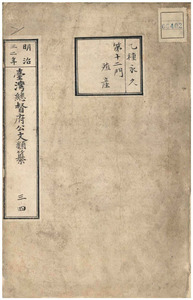 乙種永久
第十二門
殖産
明治
三二年
臺灣總督府公文類纂
三四